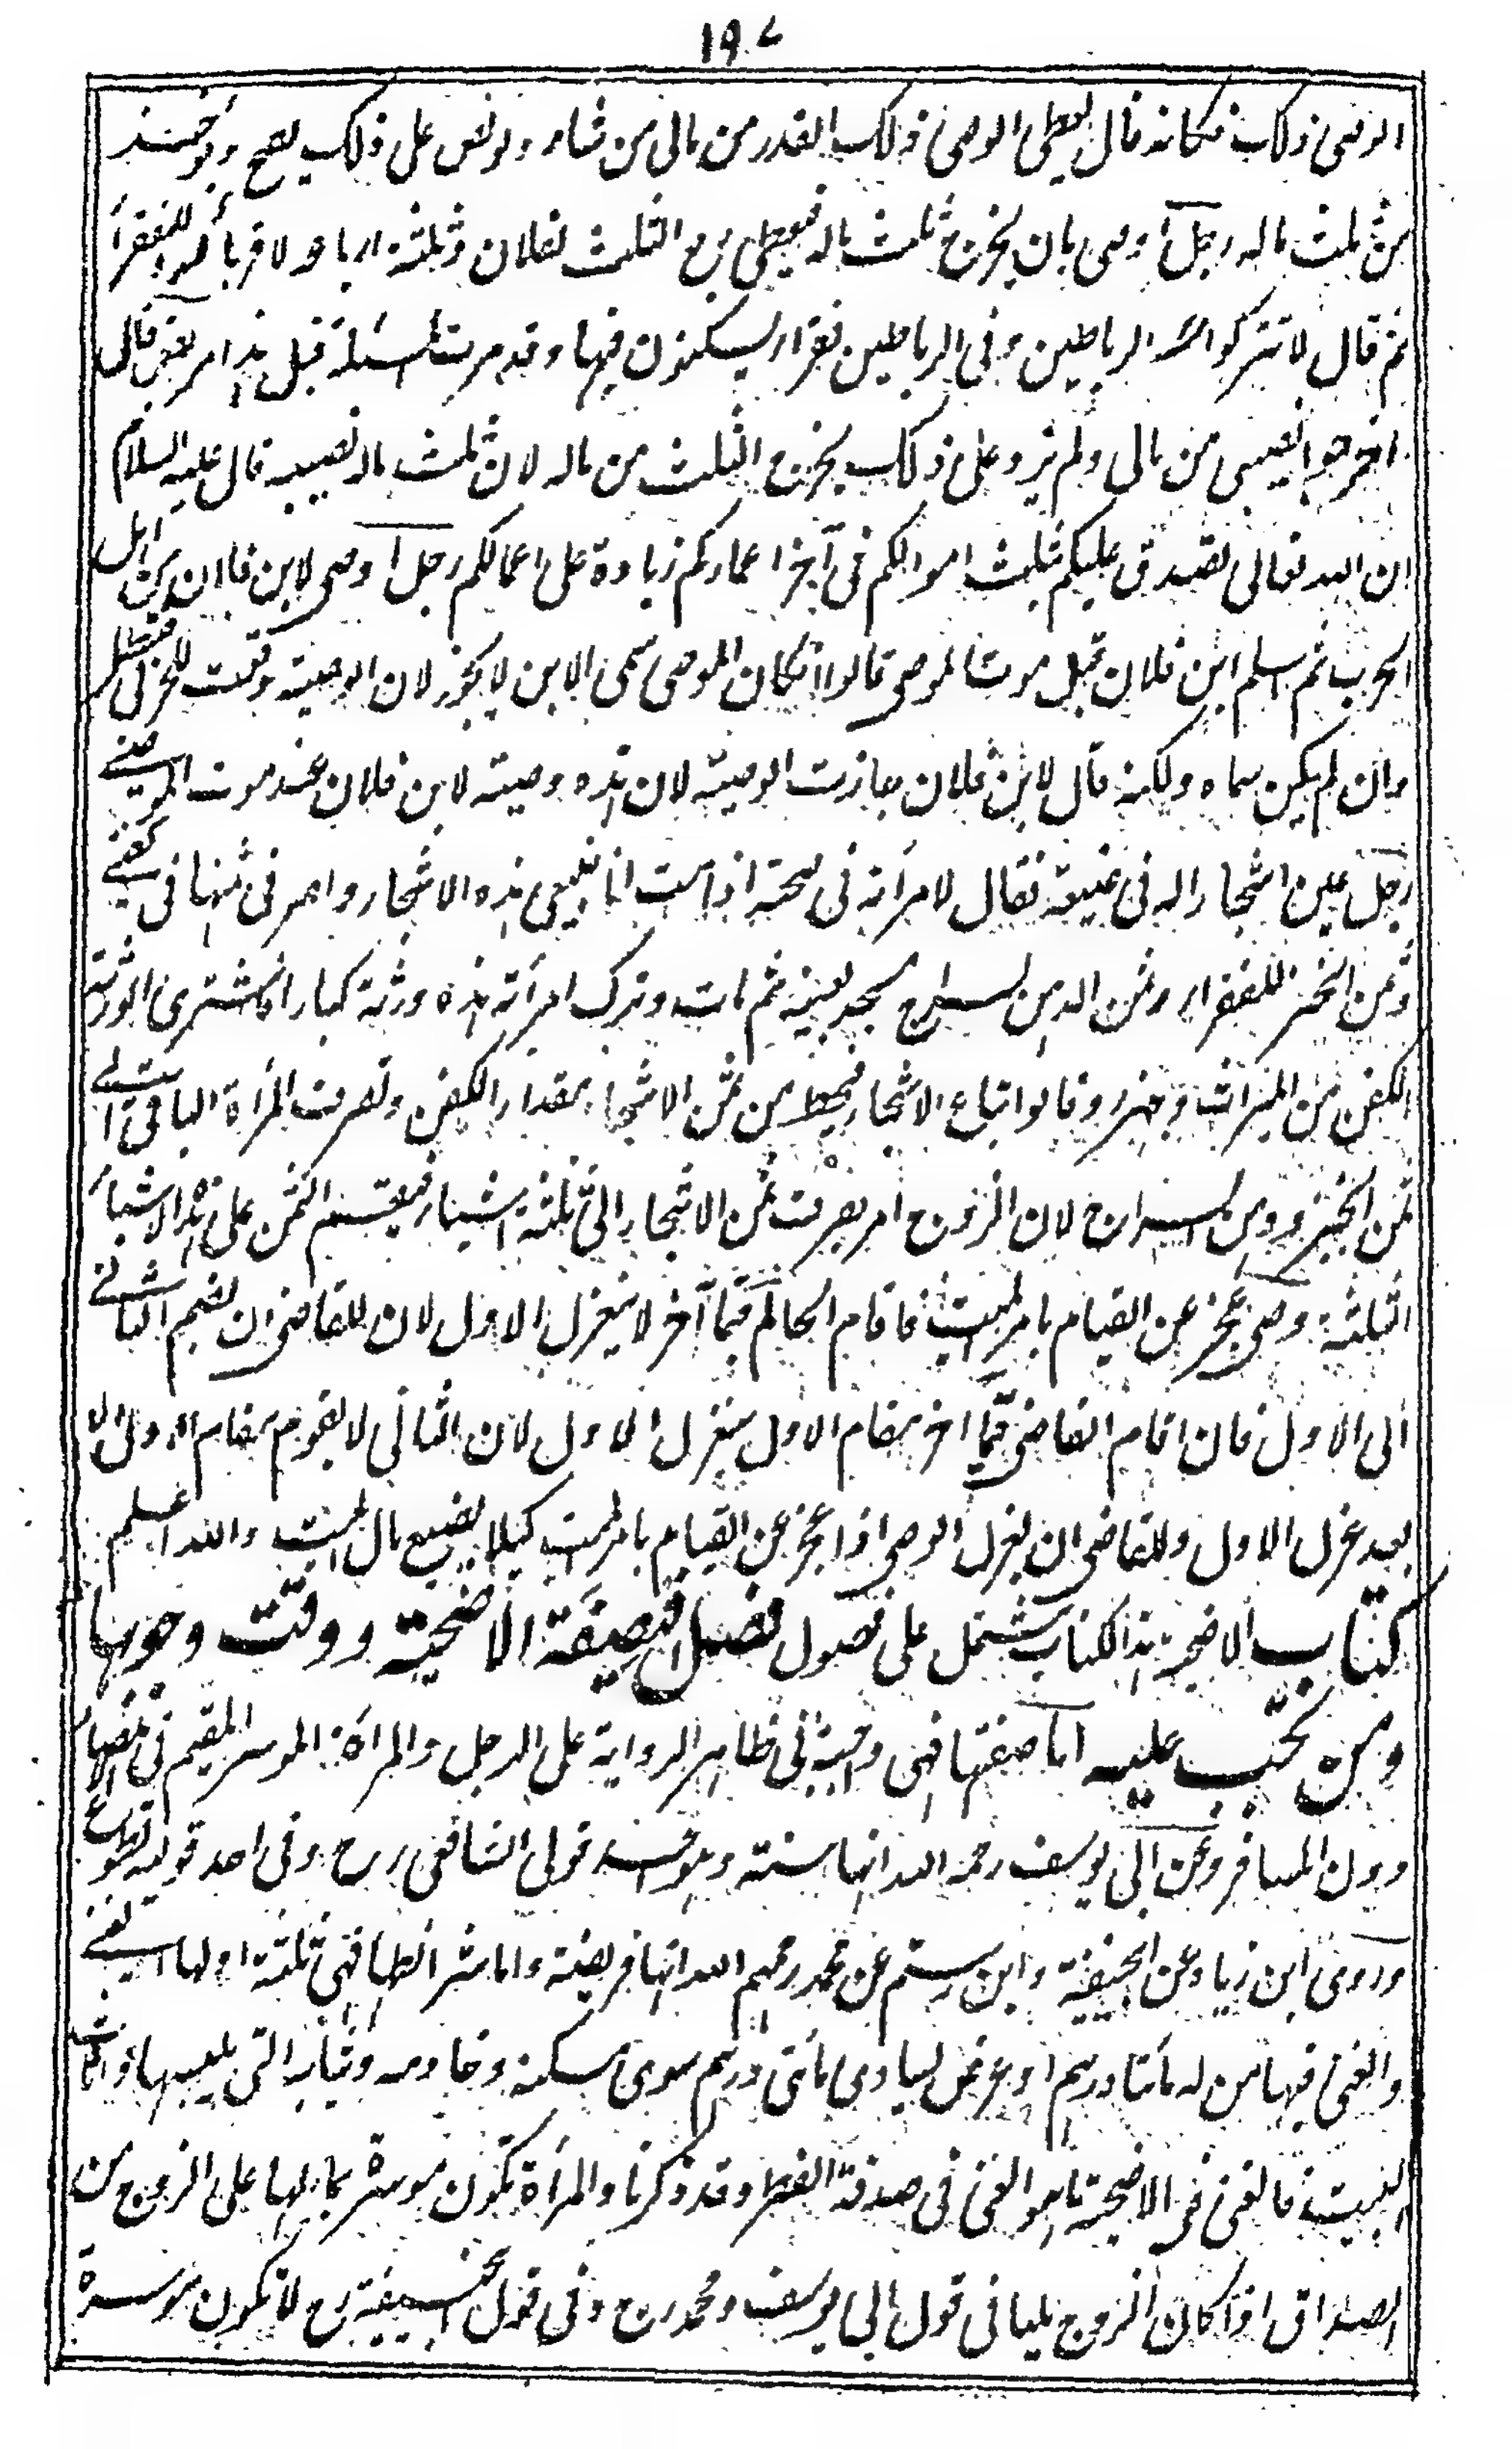 ١٩٧
الوصى ذلك فكانه قال يعطى الوصى ذلك القدر من مالى من شاء ولو نص على ذلك يصح ويؤخذ
من ثلث ماله رجل اوصى بان يخرج ثلث ماله فيعطى ربع الثلث لفلان وثلثة ارباعه لاقربائه وللفقراء
ثم قال لا تتركوا الرباطين وفى الرباطين فقراء يسكنون فيها وقد مرت المسئلة قبل هذا مريض قال
اخرجوا نصيبى من مالى ولم يزد على ذلك يخرج الثلث من ماله لان ثلث ماله نصيبه قال عليه السلام
ان الله تعالى تصدق عليكم بثلث اموالكم فى آخر اعماركم زيادة على اعمالكم رجل اوصى لابن فلان من اهل
الحرب ثم اسلم ابن فلان قبل موت الموصى قالوا ان كان الموصى سمى الابن لا يجوز لان الوصية وقعت للحربى
وان لم يكن سماه ولكنه قال لابن فلان جازت الوصية لان هذه وصية لابن فلان عند موت الموصى
رجل عين اشجارا له فى ضيعة فقال لامرأته فى صحته اذا مت انا فبيعى هذه الاشجار واصرفى ثمنها فى كفنى
وثمن الخبز للفقراء وثمن الدهن لسراج مسجد بعينه ثم مات وترك امرأته هذه وورثة كبارا فاشترى الورثة
الكفن من الميراث وجهزوه قالوا تباع الاشجار فيحط من ثمن الاشجار بمقدار الكفن وتصرف المرأة الباقى الى
ثمن الخبز ودهن السراج لان الزوج امر بصرف ثمن الاشجار الى ثلثة اشياء فيقسم الثمن على هذه الاشياء
الثلثة وصى عجز عن القيام بامر الميت فاقام الحاكم قيما آخر لا ينعزل الاول لان للقاضى ان يضم الثانى
الى الاول فان اقام القاضى قيما آخر مقام الاول ينعزل الاول لان الثانى لا يقوم مقام الاول الا
بعد عزل الاول وللقاضى ان يعزل الوصى اذا عجز عن القيام بامر الميت كيلا يضيع مال الميت والله اعلم
كتاب الاضحية هذا الكتاب يشتمل على فصول فصل فى صفة الاضحية ووقت وجوبها
ومن تجب عليه اما صفتها فهى واجبة فى ظاهر الرواية على الرجل والمرأة الموسر المقيم فى الامصار
دون المسافر وعن ابى يوسف رحمه الله انها سنة وهو احد قولى الشافعى رح وفى احد قوليه تطوع
وروى ابن زياد عن ابى حنيفة وابن رستم عن محمد رحمهم الله انها فريضة واما شرائطها فهى ثلثة اولها الغنى
والغنى فيها من له مأتا درهم او عرض يساوى مأتى درهم سوى مسكنه وخادمه وثيابه التى يلبسها واثاث
البيت فالغنى فى الاضحية ما هو الغنى فى صدقة الفطر وقد ذكرنا والمرأة تكون موسرة بما لها على الزوج من
الصداق اذا كان الزوج مليا فى قول ابى يوسف ومحمد رح وفى قول ابى حنيفة رح لا تكون موسرة